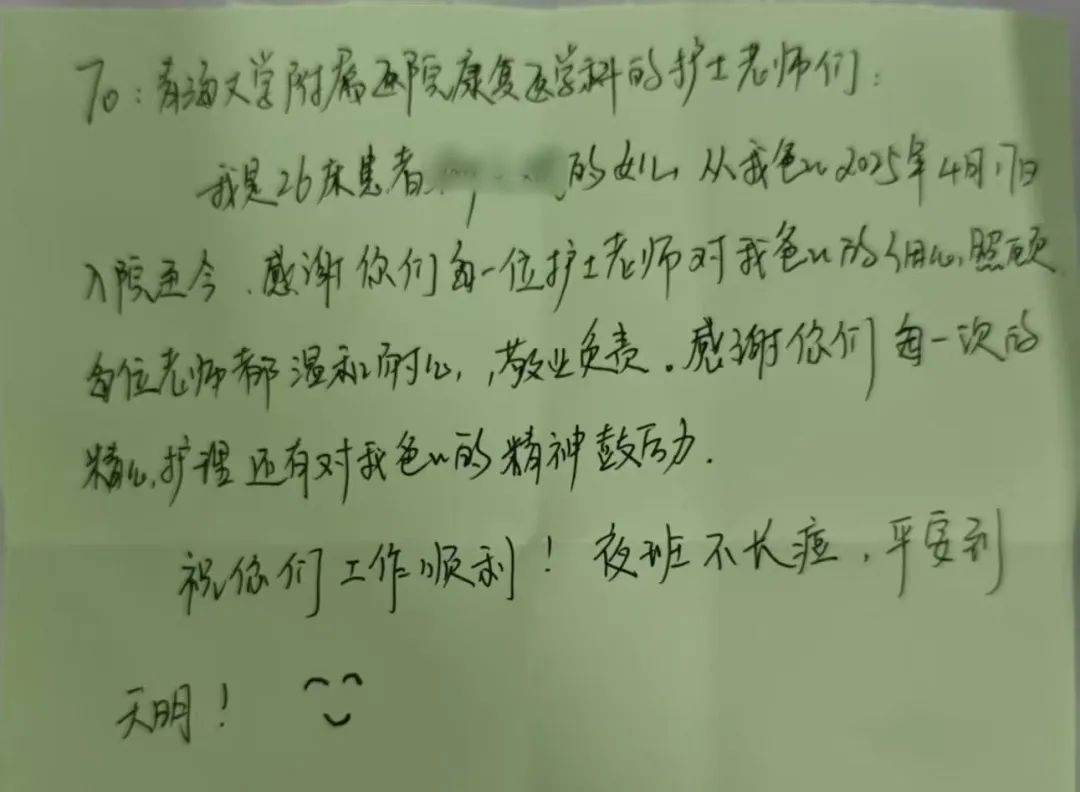 To:青海大学附属医院康复医学科的护士老师们:
我是26床患者 的女儿,从我爸从2025年4月17日
入院至今,感谢你们每一位护士老师对我爸爸的细心照顾
每位老师都温和耐心,敬业负责。感谢你们每一次的
精心护理还有对我爸爸的精神鼓励.
祝你们工作顺利!夜班不长痘,平安到
天明!